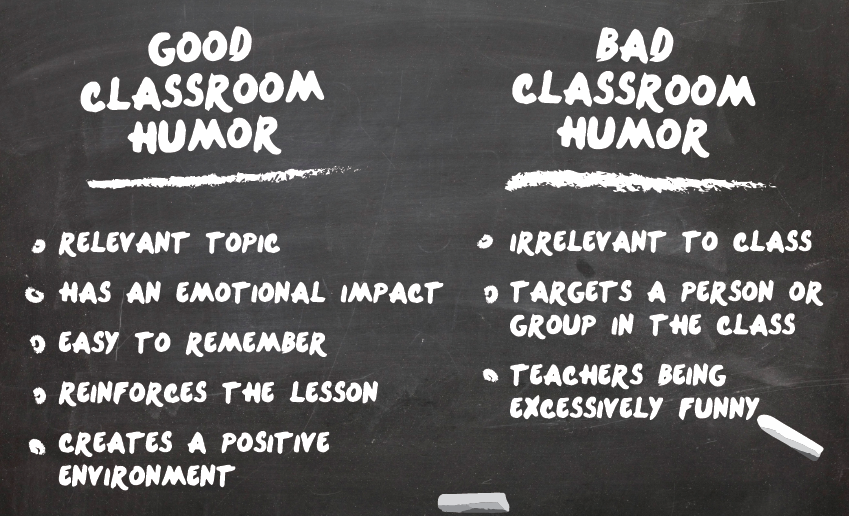 GOOD
CLASSROOM
HUMOR
RELEVANT TOPIC
HAS AN EMOTIONAL IMPACT
EASY TO REMEMBER
REINFORCES THE LESSON
CREATES A POSITIVE
ENVIRONMENT
BAD
CLASSROOM
HUMOR
IRRELEVANT TO CLASS
TARGETS A PERSON OR
GROUP IN THE CLASS
TEACHERS BEING
EXCESSIVELY FUNNY